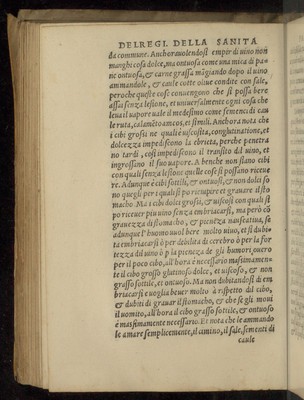 DEL REGI. DELLA SANITA
da commune. Anchora uolendosi empir di uino non
manghi cosa dolce, ma ontuosa come una mica di pa-
ne ontuosa, & carne grassa mãgiando dopo il uino
ammandole, & caule cotte oliue condite con sale,
peroche queste cose conuengono che si possa bere
assai senza lesione, et uniuersalmente ogni cosa che
leua il uapore uale il medesimo come sementi di cau
le ruta, calamẽto amicos, et simili. Anchora nota che
i cibi grossi ne quali è uiscosita, conglutinatione, et
dolcezza impediscono la ebrieta, perche penetra
no tardi, cosi impediscono il transito dil uino, et
ingrossano il suo uapore. A benche non siano cibi
con quali senza lesione quelle cose si possano riceue
re. Adunque i cibi sottili, & ontuosi, & non dolci so
no quegli per i quali si po ricupare et grauare il sto
macho Ma i cibi dolci grossi, & uiscosi con quali si
po riceuer piu uino senza embriacarsi, ma però cõ
grauezza di stomacho, & pienezza nasfatiua, se
adunque l'huomo uuol bere molto uino, et si dubi
ta embriacarsi ò per debilita di cerebro ò per la for
tezza dil uino ò p la pieneza de gli humori, ouero
per il poco cibo, all'hora è necessario masimamen-
te il cibo grosso glutinoso dolce, et uiscoso, & non
grasso sottile, et ontuoso. Ma non dubitandosi di em
briacarsi e uoglia beuer molto à rispetto dil cibo,
& dubiti di grauar il stomacho, & che se gli moui
il uomito, all'hora il cibo grasso sottile, & ontuoso
è masimamente necessario. Et nota che le ammando
le amare semplicemente, il cimino, il sale, sementi di
caule